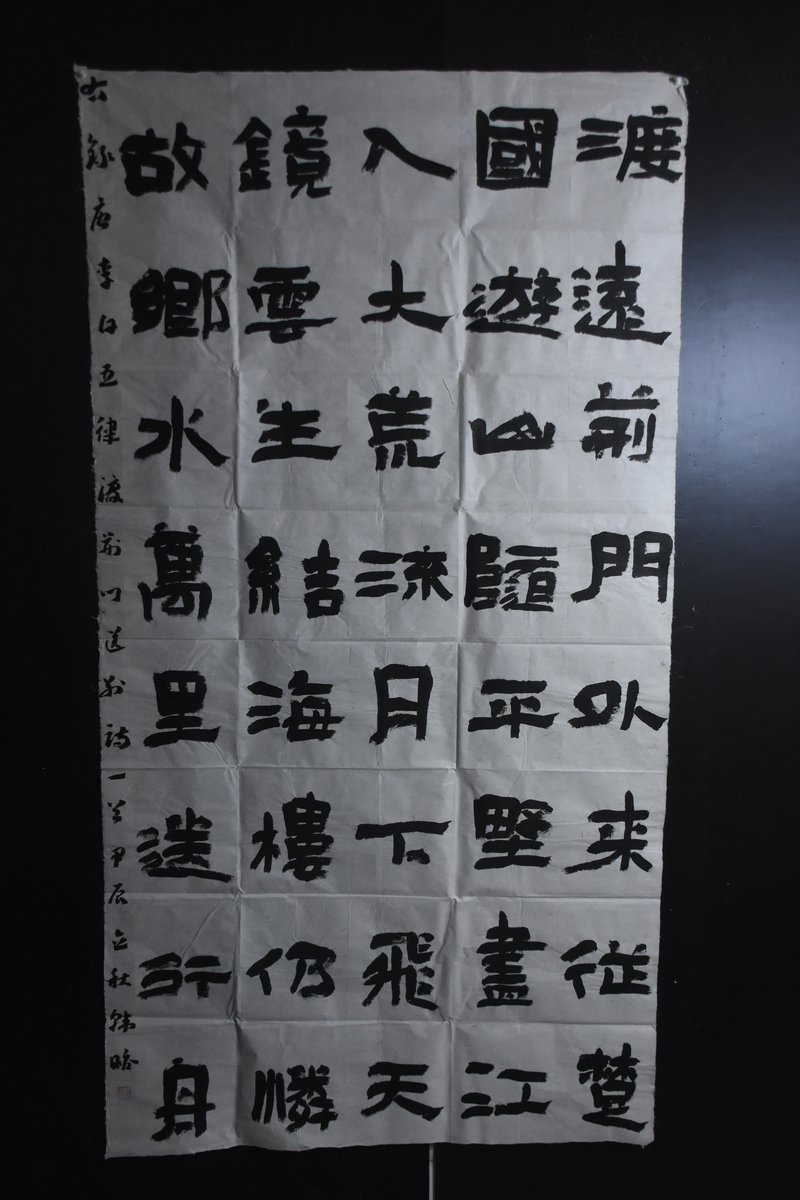 渡遠荆門外来從楚
國遊山隨平野盡江
入大荒流月下飛天
鏡雲生結海樓仍憐
故鄉水萬里送行舟
右錄唐李白五律渡荆門送別詩一首甲辰立秋